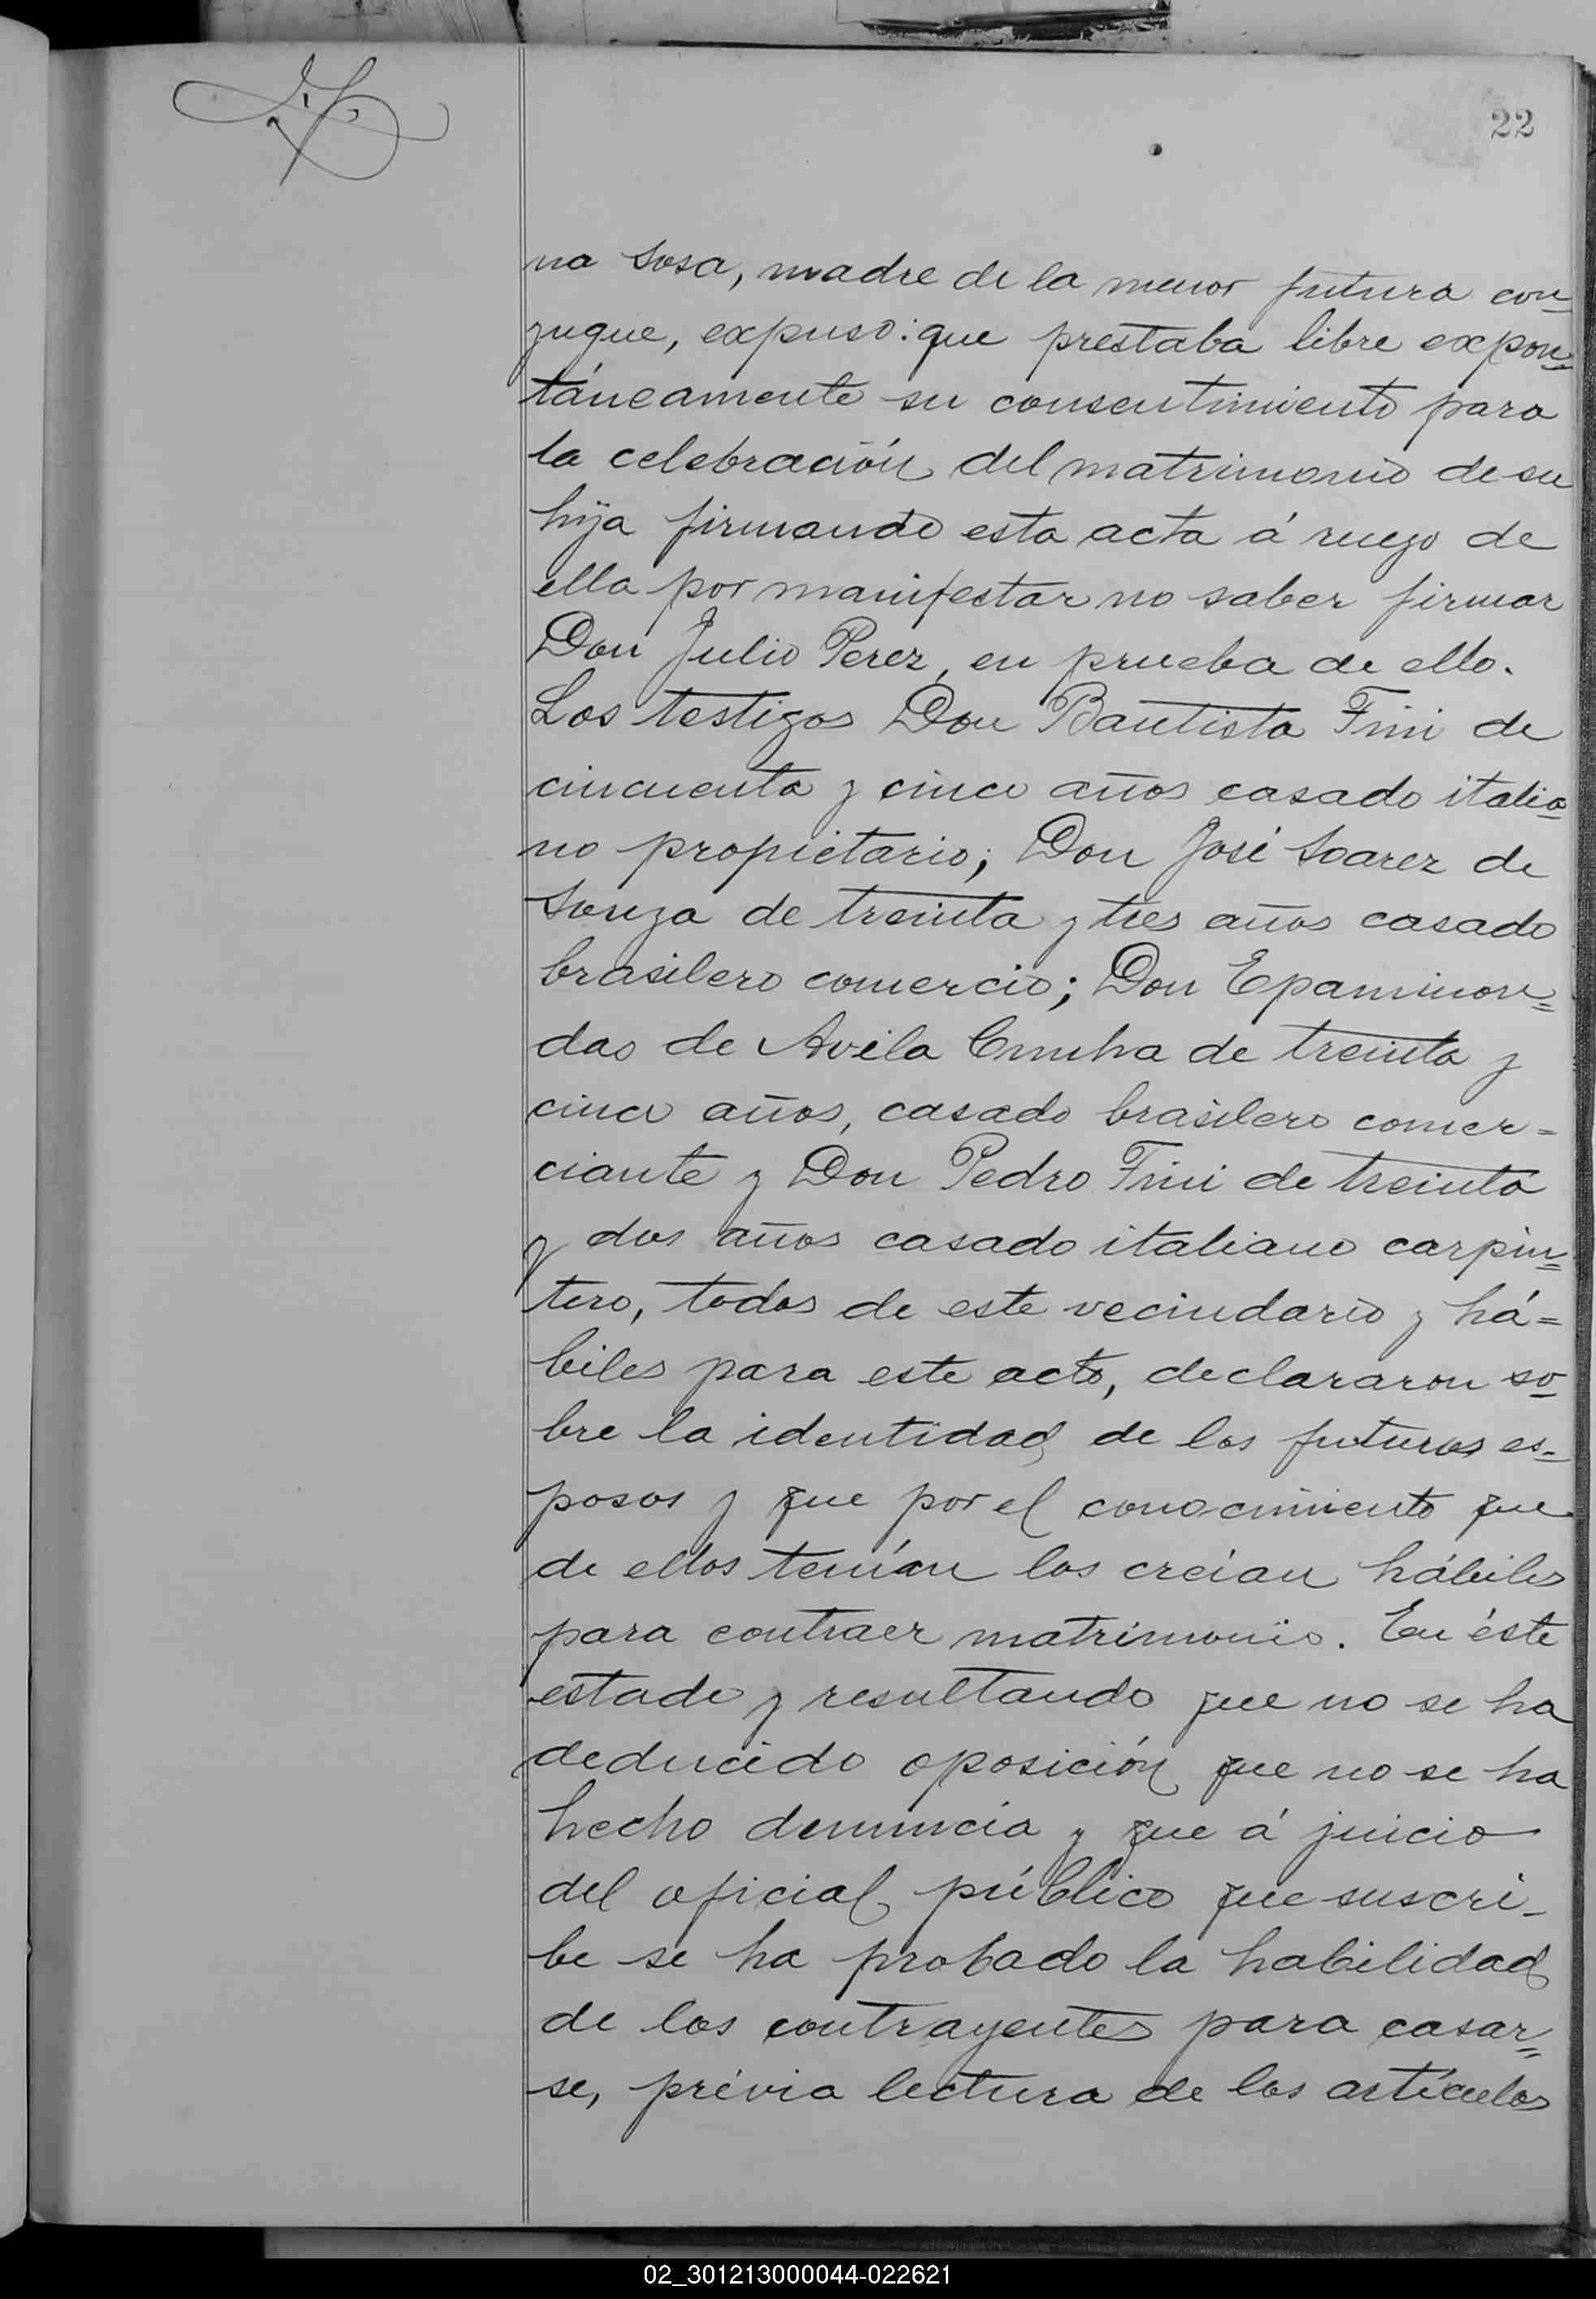 22
na Sosa, madre de la menor futura con-
yugue, expuso: que prestaba libre expon-
táneamente su consentimiento para
la celebración del matrimonio de su
hija firmando esta acta á ruego de
ella por manifestar no saber firmar
Don Julio Perez, en prueba de ello.
Los testigos Don Bautista Fini de
cincuenta y cinco años casado italia-
no propietario; Don José Soarez de
Souza de treinta y tres años casado
brasilero comercio; Don Epaminon=
das de Avila Cunha de treinta y
cinco años, casado brasilero comer=
ciante y Don Pedro Fini de treinta
y dos años casado italiano carpin=
tero, todos de este vecindario y há=
biles para este acto, declararon so-
bre la identidad de los futuros es-
posos y que por el conocimiento que
de ellos tenían los creían hábiles
para contraer matrimonio. En éste
estado y resultando que no se ha
deducido oposición que no se ha
hecho denuncia y que á juicio
del oficial público que suscri-
be se ha probado la habilidad
de los contrayentes para casar=
se, prévia lectura de los artículos
02_301213000044-022621